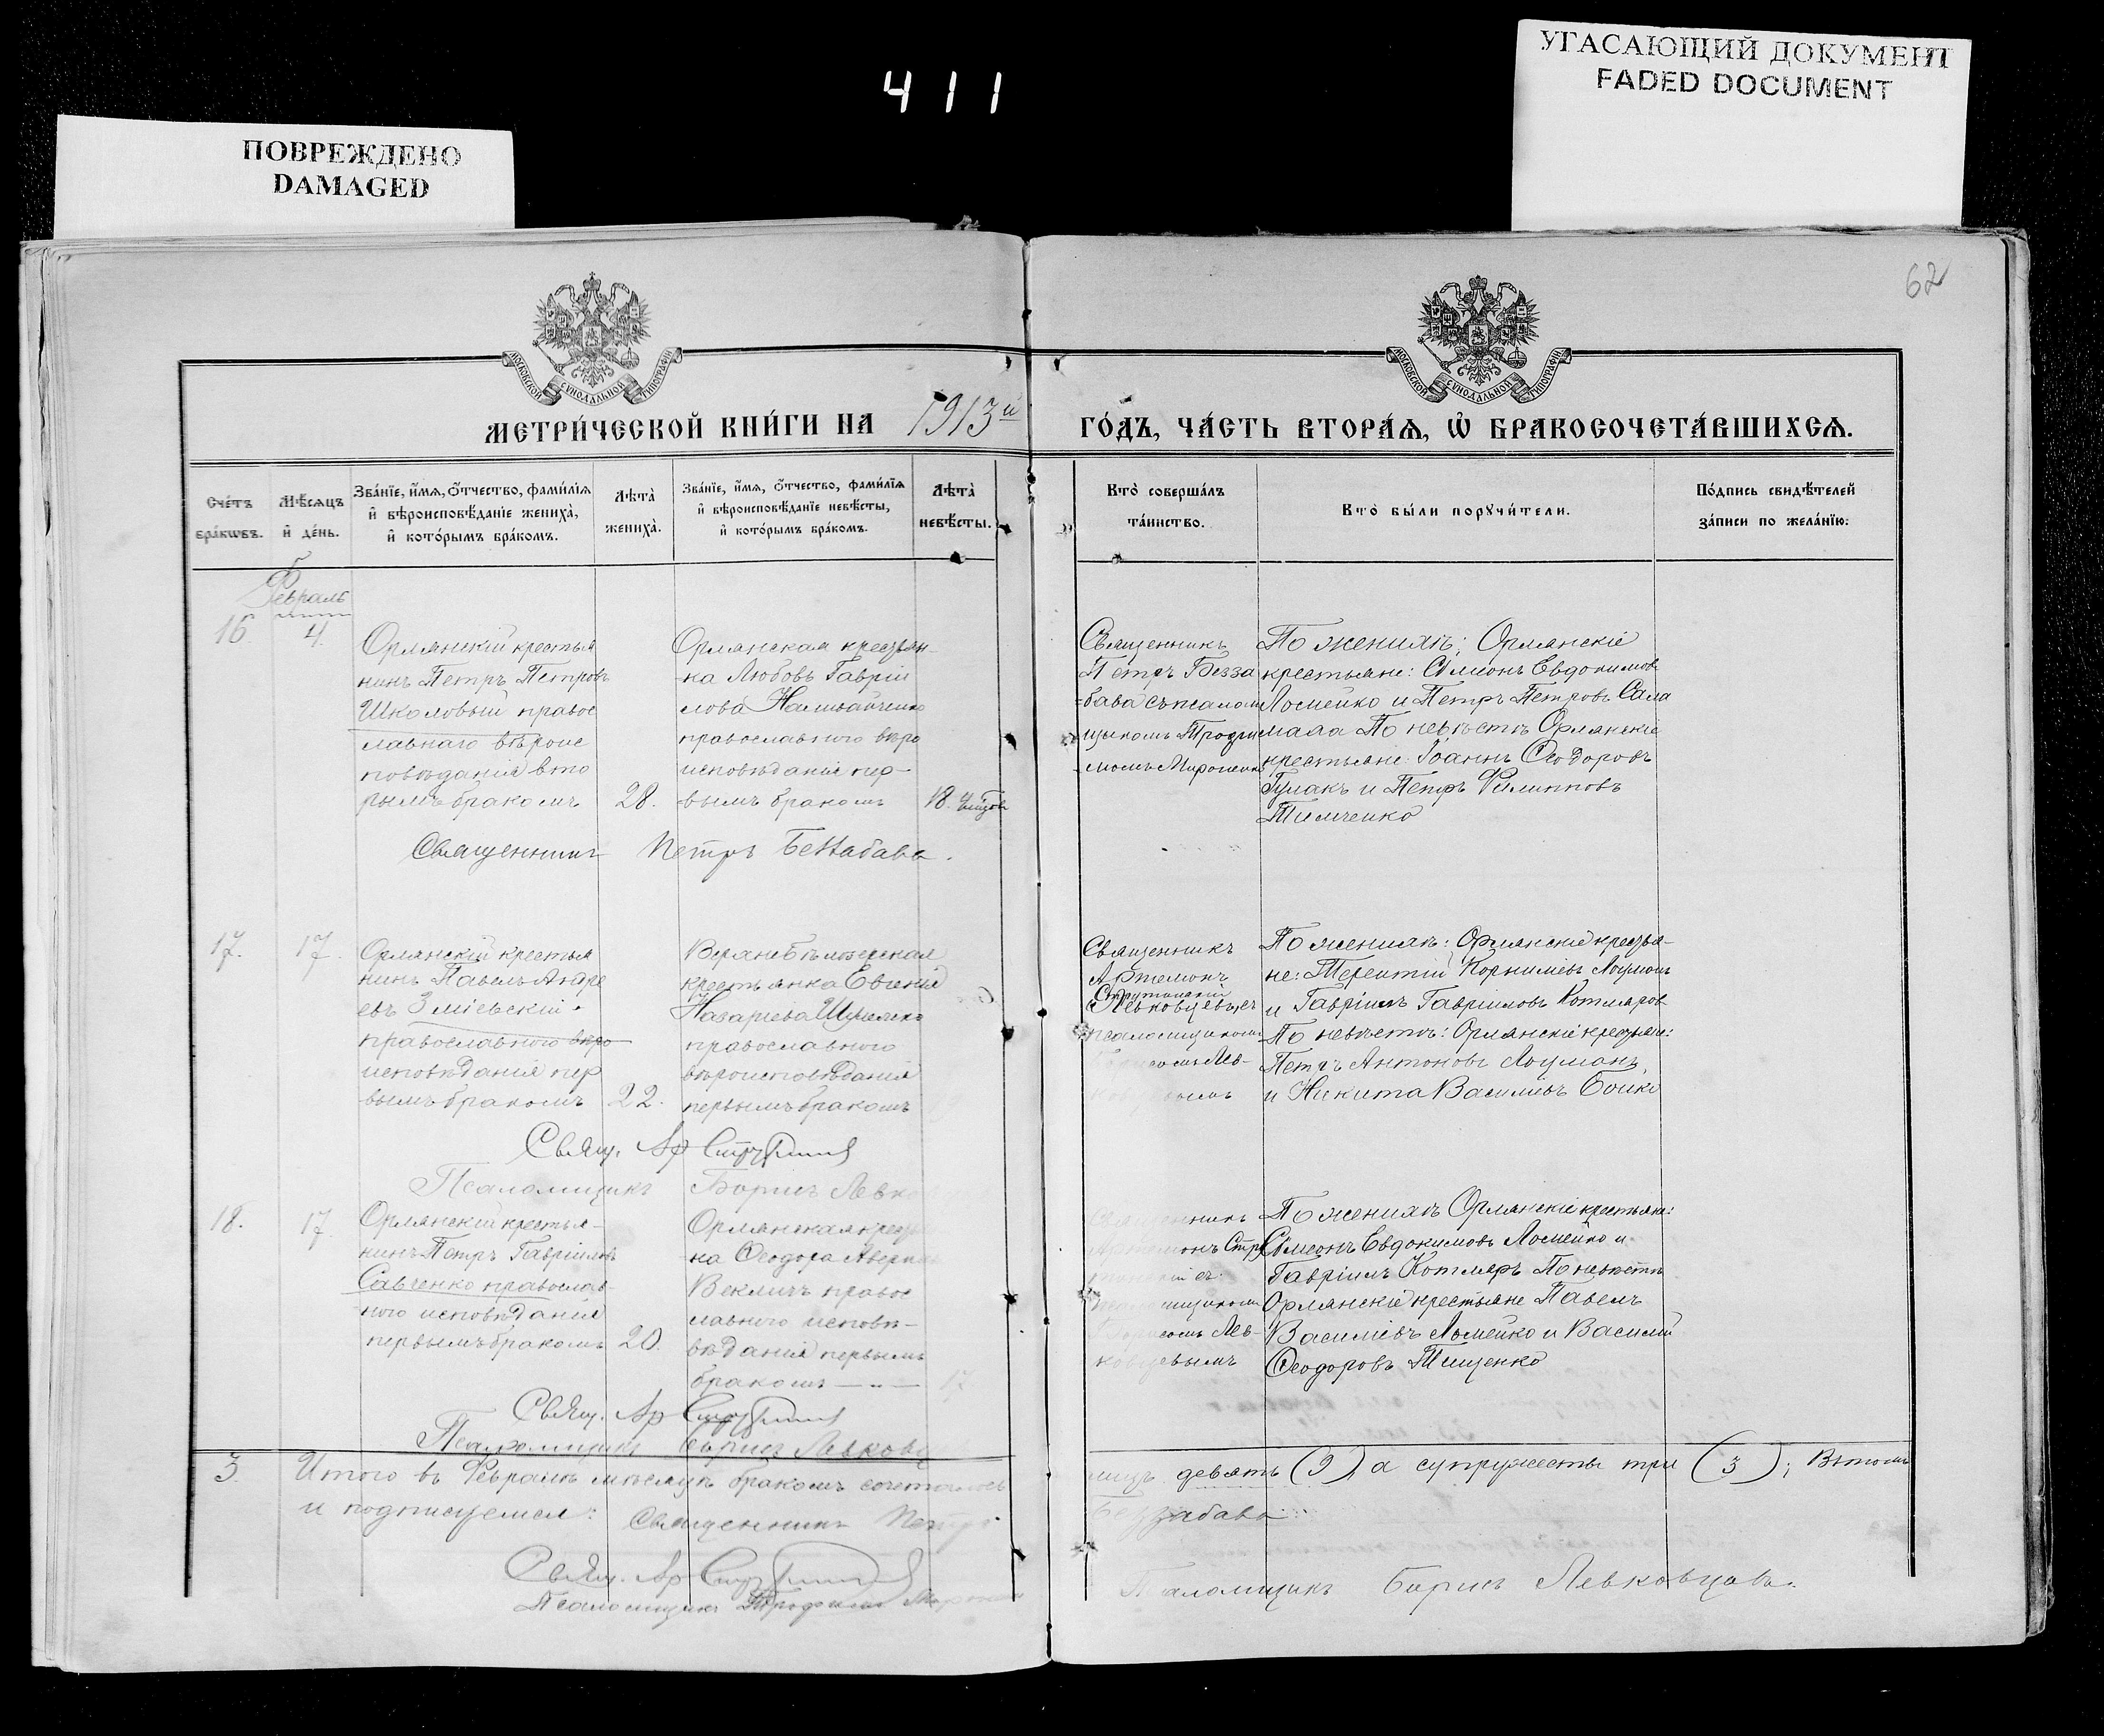 411
УГАСАЮЩИЙ ДОКУМЕНТ
FADED DOCUMENT
ПОВРЕЖДЕНО
DAMAGED
62
МОСКОВСКОЙ СУНОДАЛЬНОЙ ТИПОГРАФІИ
МОСКОВСКОЙ СУНОДАЛЬНОЙ ТИПОГРАФІИ
МЕТРИ́ЧЕСКОЙ КНИ́ГИ НА 1913й ГО́ДЪ, ЧА́СТЬ ВТОРА́Ѧ, Ѡ҆ БРАКОСОЧЕТА́ВШИХСѦ.
Сче́тъ
бра́кѡвъ.
Мѣ́сѧцъ
и҆ де́нь.
Зва́нїе, и҆́мѧ, ѻ҆́тчество, фами́лїѧ
и҆ вѣроисповѣ́данїе жениха̀,
и҆ кото́рымъ бра́комъ.
Лѣта̀
жениха̀.
Зва́нїе, и҆́мѧ, ѻ҆́тчество, фами́лїѧ
и҆ вѣроисповѣ́данїе невѣ́сты,
и҆ кото́рымъ бра́комъ.
Лѣта̀
невѣ́сты.
Кто̀ соверша́лъ
та́инство.
Кто̀ бы́ли порꙋчи́тели.
По́дпись свидѣ́телей
за́писи по жела́нїю.
Февраль
16.
4.
Орлянскій крестья
нинъ Петръ Петровъ
Школовый правос
лавнаго вѣроис
повѣданія вто
рымъ бракомъ
28.
Орлянская крестьян-
-ка Любовь Гавріи
лова Наливайченко
православного вѣро
исповѣданія пер-
-вымъ бракомъ
18.
Священникъ
Петръ Безза
=бава съ псалом
щикомъ Трофи
момъ Мироненко
По жениху: Орлянскіе
крестьяне: Сѵмеонъ Евдокимовъ
Ломейко и Петръ Петровъ Сала
мала По невѣстѣ Орлянскіе
крестьяне Іоаннъ Ѳеодоровъ
Гулакъ и Петръ Филипповъ
Тимченко
Священникъ Петръ Беззабава.
17.
17.
Орлянскій крестья
нинъ Павелъ Андре
евъ Зміевскій
православного вѣро
исповѣданія пер
-вымъ бракомъ
22.
крестьянка Евгенія
Назаріева
православного
вѣроисповѣданія
первымъ бракомъ
Священникъ
Артемонъ
псаломщикомъ
Лев-
По жениху: Орлянскіе крестья-
не: Терентій Корниліевъ Лоуманъ
и Гавріилъ Гавріиловъ Котляров
По невѣстѣ: Орлянскіе крестьяне:
Петръ Антоновъ Лоуманъ
и Никита Василіевъ Бойко
Свящ. Ар
Псаломщикъ Борисъ Левко
18.
17.
Орлянскій крестья-
нинъ Петръ Гавріиловъ
Савченко православ-
ного исповѣданія
первымъ бракомъ
20.
Орлянская крестья
на Ѳеодора
Векличъ правос
лавного исповѣ-
вѣданія первымъ
бракомъ
17
Стру
псаломщикомъ
Борисомъ Лев-
ковцевымъ
По жениху Орлянскіе крестьяне:
Сѵмеонъ Евдокимовъ Ломейко и
Гавріилъ Котляръ По невѣстѣ
Орлянскіе крестьяне Павелъ
Василіевъ Ломейко и Василій
Ѳеодоровъ Тищенко
Свящ. Ар
Псаломщикъ Борисъ Левковц
3.
Итого въ Февралѣ мѣсяцѣ бракомъ сочеталось лицъ девять (9), а супружествъ три (3); Въ томъ
и подписуемся: Священникъ Петръ Беззабава
Свящ. Ар
Псаломщикъ Трофимъ
Псаломщикъ Борисъ Левковцовъ.